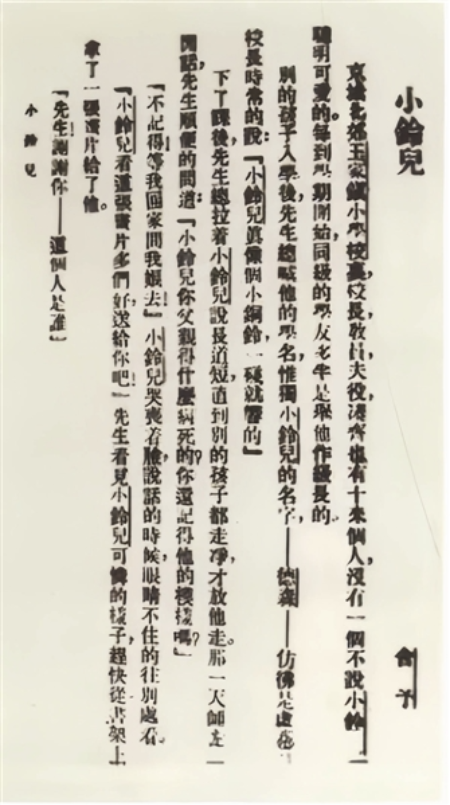 小鈴兒
舍予
京城北郊王家鎭小學校裏,校長,敎員夫役,湊齊也有十來個人,沒有一個不說小鈴
聰明可愛的。每到學期開始同級的學友多半是舉他作級長的。
別的孩子入學後,先生總喊他的學名,惟獨小鈴兒的名字——德森——仿彿是虛
校長時常的說:『小鈴兒眞像個小銅鈴,一碰就響的』
下了課後,先生總拉着小鈴兒說長道短,直到別的孩子都走凈,才放他走。那一天師生
閒話,先生順便的問道:『小鈴兒你父親得什麼病死的?你還記得他的模樣嗎?』
『不記得!等我回家問我娘去!』小鈴兒哭喪着臉,說話的時候,眼睛不住的往別處看。
『小鈴兒看這張畫片多們好,送給你吧!』先生看見小鈴兒可憐的樣子,趕快從書架上
拿了一張畫片給了他。
『先生!謝謝你——這個人是誰』
小鈴兒